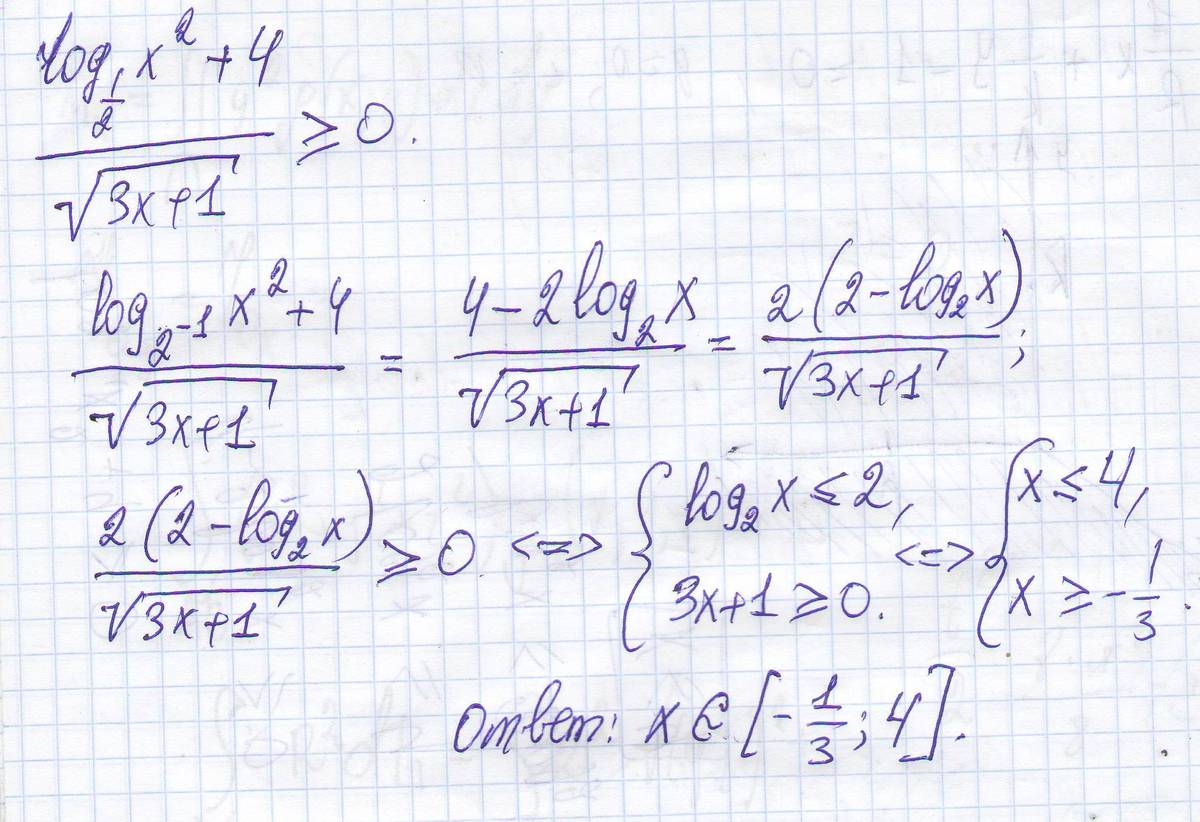 log_{1/2} x² + 4
───────── ≥ 0.
√(3x+1)
(log_{2⁻¹} x² + 4)/√(3x+1) = (4 - 2log₂x)/√(3x+1) = 2(2 - log₂x)/√(3x+1);
2(2 - log₂x)/√(3x+1) ≥ 0 <=> { log₂x ≤ 2, 3x+1 ≥ 0. <=> { x ≤ 4, x ≥ -1/3.
Ответ: x ∈ [-1/3; 4].